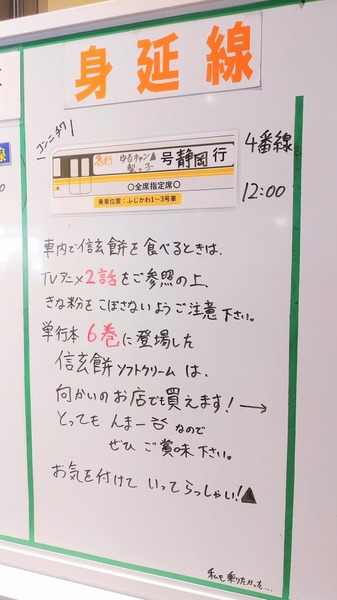 身延線
コンニチワ!
急行 ゆるキャン▲ 梨っ子 号 静岡 行
○全席指定席○
乗車位置:ふじかわ1~3号車
4番線
12:00
車内で信玄餅を食べるときは、
TVアニメ2話をご参照の上、
きな粉をこぼさないようご注意下さい。
単行本6巻に登場した
信玄餅ソフトクリームは、
向かいのお店でも買えます!→
とってもんまー谷なので
ぜひご賞味下さい。
お気を付けていってらっしゃい!▲
私も乗りたかった....
線